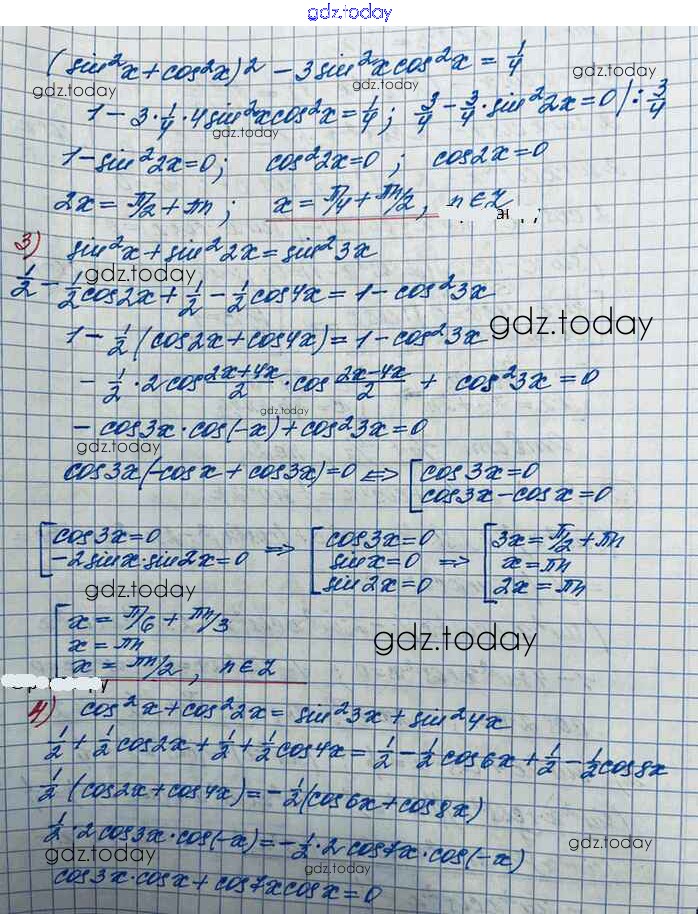 gdz.today
(sin²x+cos²x)² - 3sin²xcos²x = 1/4
gdz.today gdz.today
1 - 3·1/4·4sin²xcos²x = 1/4; 3/4 - 3/4·sin²2x = 0 |: 3/4
gdz.today
1 - sin²2x = 0; cos²2x = 0; cos2x = 0
2x = π/2 + πn; x = π/4 + πn/2, n∈Z
3) sin²x + sin²2x = sin²3x
gdz.today
1/2 - 1/2cos2x + 1/2 - 1/2cos4x = 1 - cos²3x
1 - 1/2(cos2x + cos4x) = 1 - cos²3x
gdz.today
- 1/2·2cos(2x+4x)/2 · cos(2x-4x)/2 + cos²3x = 0
gdz.today
- cos3x·cos(-x) + cos²3x = 0
cos3x(-cosx + cos3x) = 0 <=> [cos3x = 0
cos3x - cosx = 0
[cos3x = 0 => [cos3x = 0 => [3x = π/2 + πn
-2sinx·sin2x = 0 sinx = 0 x = πn
sin2x = 0 2x = πn
gdz.today
[x = π/6 + πn/3
x = πn
x = πn/2, n∈Z
gdz.today
4) cos²x + cos²2x = sin²3x + sin²4x
1/2 + 1/2cos2x + 1/2 + 1/2cos4x = 1/2 - 1/2cos6x + 1/2 - 1/2cos8x
1/2(cos2x + cos4x) = -1/2(cos6x + cos8x)
1/2·2cos3x·cos(-x) = -1/2·2cos7x·cos(-x)
gdz.today gdz.today
cos3x·cosx + cos7xcosx = 0